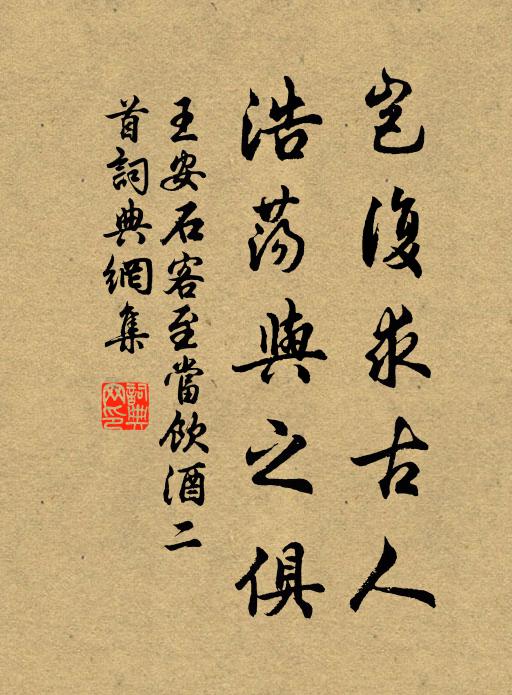 豈復求古人
浩蕩與之俱
王安石客至當飲酒二
首詞典網集
詞典
网印